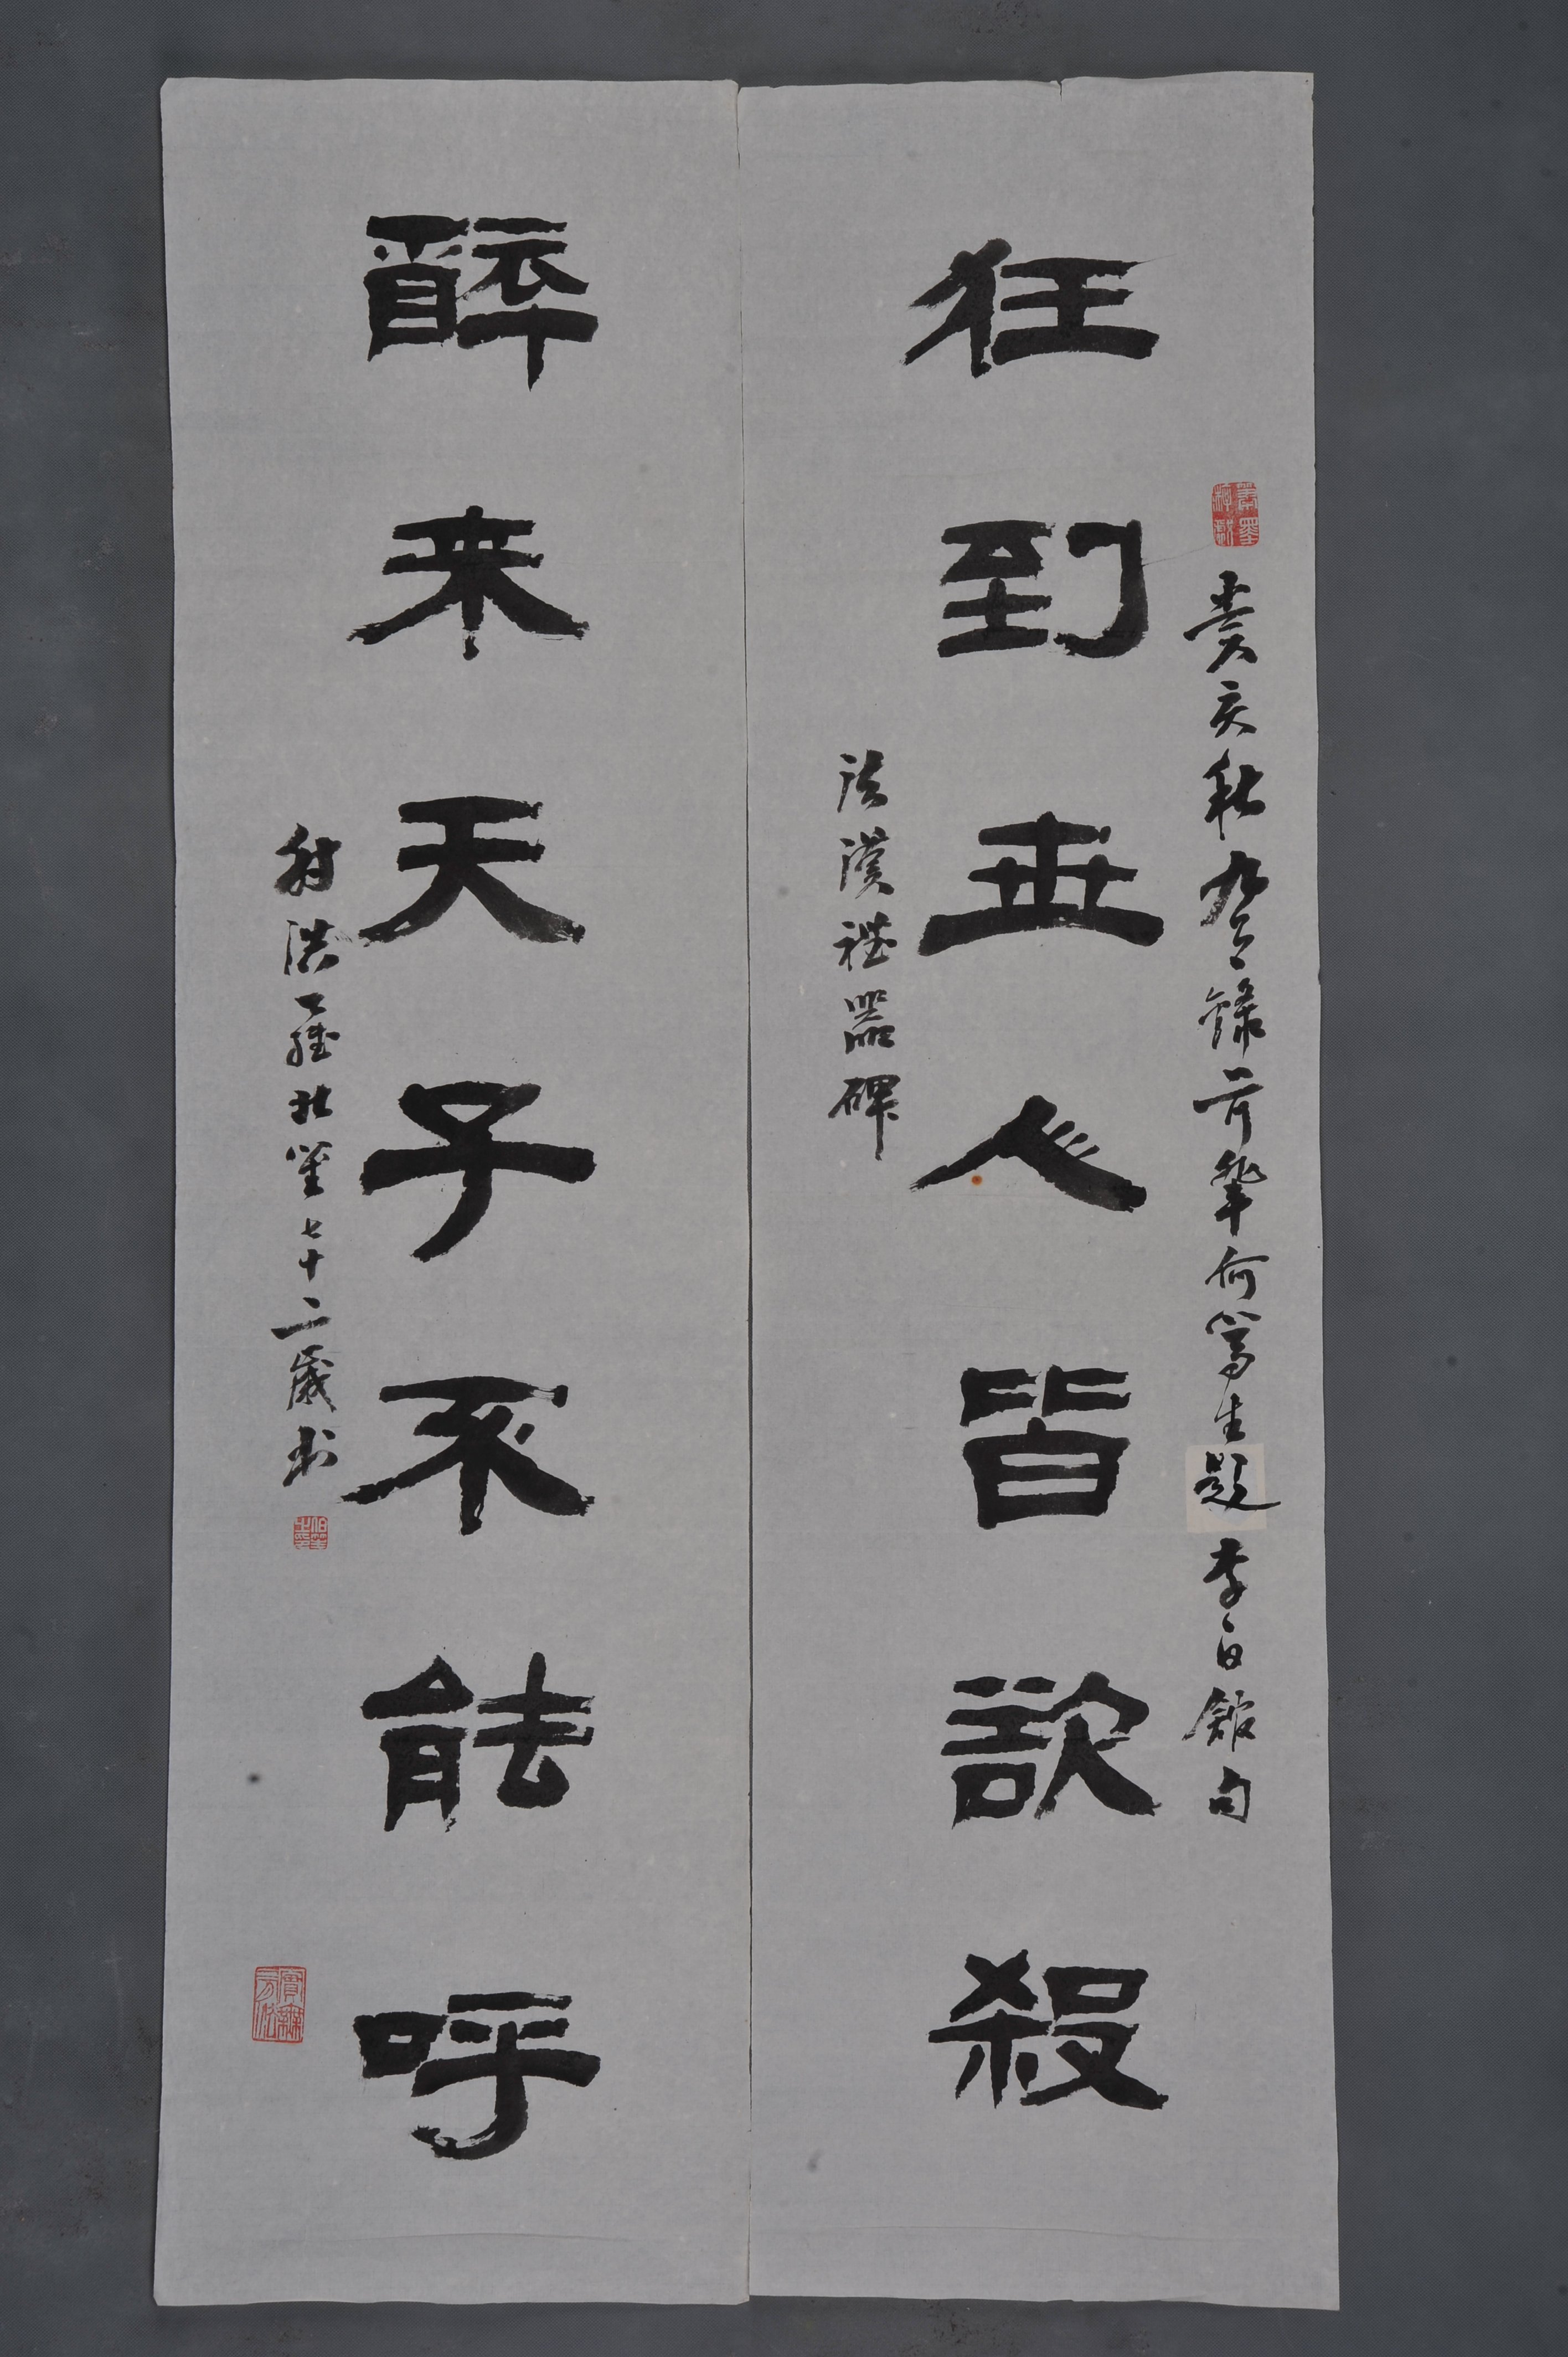 狂到世人皆欲殺
醉来天子不能呼
癸亥秋九月錄前輩何篤生題李白館句
法漢禮器碑
射洪羅伯堃七十二歲書